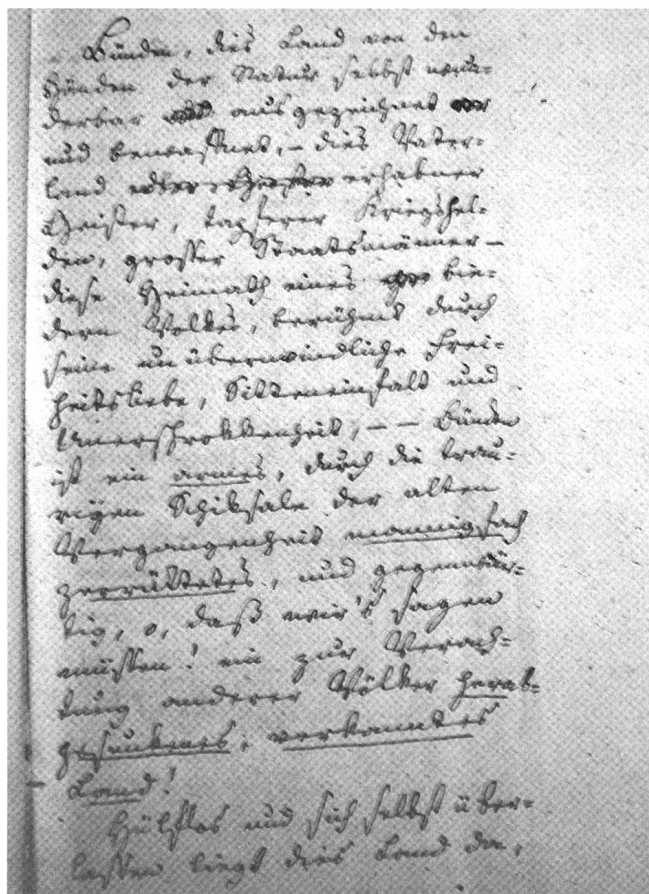 Bünden, dies Land von den
Händen der Natur selbst wun-
derbar ausgezeichnet
und bewaffnet, – dies Vater-
land erhabner
Geister, tapferer Kriegshel-
den, grosser Staatsmänner –
diese Heimath eines bie-
dern Volkes, berühmt durch
seine unüberwindliche Frei-
heitsliebe, Sitteneinfalt und
Unerschrokkenheit, – – Bünden
ist ein armes, durch die trau-
rigen Schiksale der alten
Vergangenheit mannigfach
zerrüttetes, und gegenwär-
tig, o, daß wir's sagen
müssen! ein zur Verach-
tung anderer Völker herab-
gesunkenes, verkanntes
Land!
Hülflos und sich selbst über-
lassen liegt dies Land da,